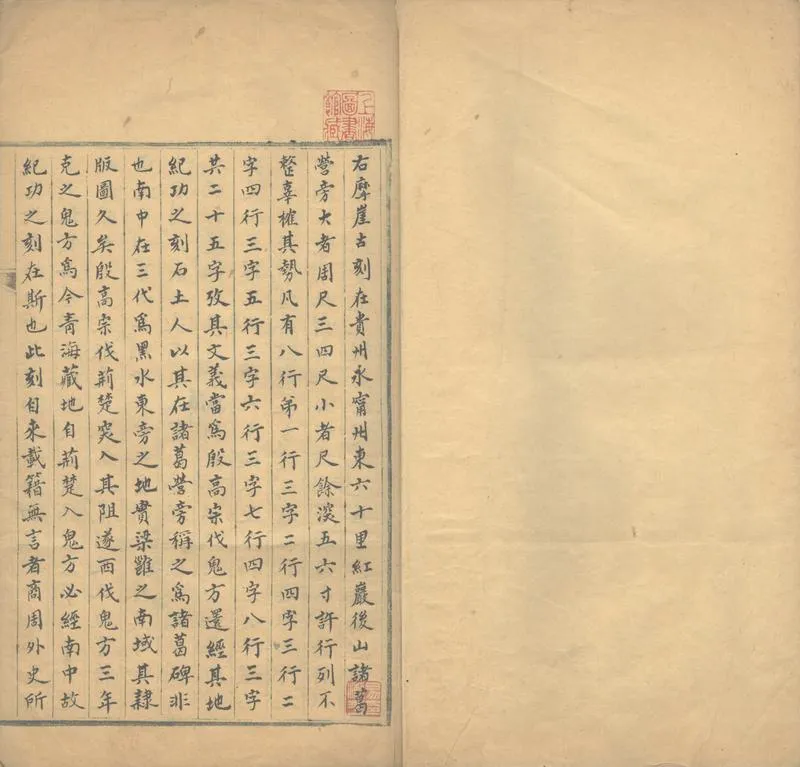 上海
圖書
館藏
右摩崖古刻在貴州永甯州東六十里紅巖後山諸葛
營旁大者周尺三四尺小者尺餘深五六寸許行列不
整辜榷其勢凡有八行弟一行三字二行四字三行二
字四行三字五行三字六行三字七行四字八行三字
共二十五字攷其文義當爲殷高宗伐鬼方還經其地
紀功之刻石土人以其在諸葛營旁稱之爲諸葛碑非
也南中在三代爲黑水東旁之地實梁雝之南域其隸
版圖久矣殷高宗伐荊楚突入其阻遂西伐鬼方三年
克之鬼方爲今青海藏地自荊楚入鬼方必經南中故
紀功之刻在斯也此刻自來載籍無言者商周外史所